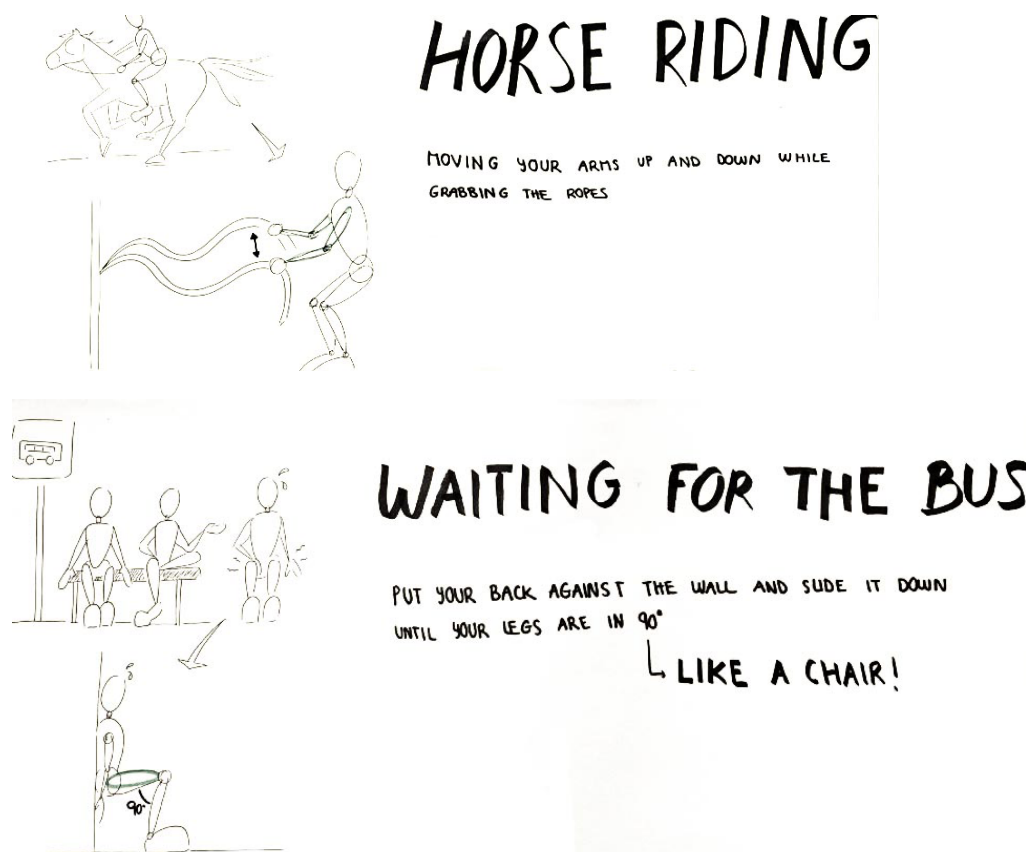 HORSE RIDING
MOVING YOUR ARMS UP AND DOWN WHILE
GRABBING THE ROPES
WAITING FOR THE BUS
PUT YOUR BACK AGAINST THE WALL AND SLIDE IT DOWN
UNTIL YOUR LEGS ARE IN 90°
LIKE A CHAIR!
90°